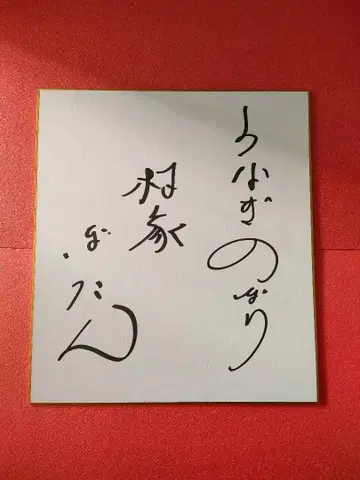 うなぎのぼり
林家
ぼたん